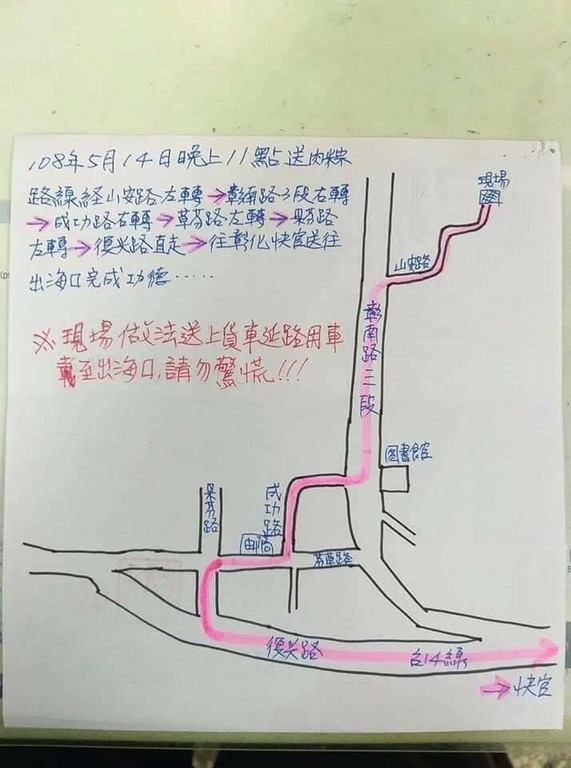 108年5月14日晚上11點送肉粽
路線経山安路左轉→彰南路三段右轉
→成功路右轉→草芬路左轉→果芬路
左轉→復興路直走→往彰化快官送往
出海口完成功德……
※現場做法送上貨車延路用車
載至出海口,請勿驚慌!!!
現場
山安路
彰南路三段
圖書館
果芬路
成功路
郵局
芬草路
復興路
台14線
→快官